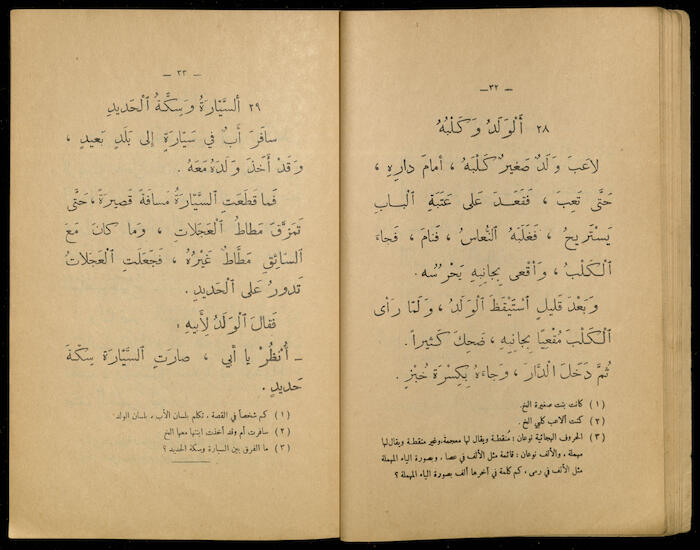 — ٣٢ —
٢٨ أَلْوَلَدُ وَكَلْبُهُ
لاعَبَ وَلَدٌ صَغيرٌ كَلْبَهُ ، أَمامَ دارِهِ ،
حَتَّى تَعِبَ ، فَقَعَدَ عَلى عَتَبَةِ ٱلْبابِ
يَسْتَريحُ ، فَغَلَبَهُ ٱلنُّعاسُ ، فَنامَ ، فَجاءَ
ٱلْكَلْبُ ، وَأَقْعى بِجانِبِهِ يَحْرُسُه .
وَبَعْدَ قَليلٍ ٱسْتَيْقَظَ ٱلْوَلَدُ ، وَلَمّا رَأى
ٱلْكَلْبَ مُقْعِيًا بِجانِبِهِ ، ضَحِكَ كَثيراً .
ثُمَّ دَخَلَ ٱلدَّارَ ، وَجاءَهُ بِكِسْرَةِ خُبْزٍ .
(١) كانت بنت صغيرة الخ.
(٢) كنت ألاعب كلبي الخ .
(٣) الحروف الهجائية نوعان : مُنقطة ويقال لها معجمة، وغير منقطة ويقال لها
مهملة ، والألف نوعان : قائمة مثل الألف في عصا ، وبصورة الياء المهملة
مثل الألف في رمى ، كم كلمة في آخرها ألف بصورة الياء المهملة ؟
— ٣٣ —
٢٩ أَلسَّيَّارَةُ وَسِكَّةُ ٱلْحَديدِ
سافَرَ أَبٌ في سَيّارَةٍ إلى بَلَدٍ بَعيدٍ ،
وَقَدْ أَخَذَ وَلَدَهُ مَعَهُ .
فَما قَطَعَتِ ٱلسَّيَّارَةُ مَسافَةً قَصيرَةً ، حَتَّى
تَمَزَّقَ مَطَّاطُ ٱلْعَجَلاتِ ، وَما كانَ مَعَ
ٱلسّائِقِ مَطَّاطٌ غَيْرُهُ ، فَجَعَلَتِ ٱلْعَجَلاتُ
تَدورُ عَلى ٱلْحَديدِ .
فَقالَ ٱلْوَلَدُ لِأَبيهِ :
— أُنْظُرْ يا أَبي ، صارَتِ ٱلسَّيَّارَةُ سِكَّةَ
حَديدٍ .
(١) كم شخصاً في القصة ، تكلم بلسان الأب ، بلسان الولد.
(٢) سافرت أم وقد أخذت ابنتها معها الخ
(٣) ما الفرق بين السيارة وسكة الحديد ؟